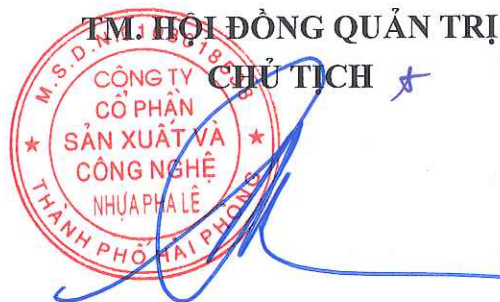 TM. HỘI ĐỒNG QUẢN TRỊ
CHỦ TỊCH
M.S.D.N
CÔNG TY
CỔ PHẦN
SẢN XUẤT VÀ
CÔNG NGHỆ
NHỰA PHA LÊ
THÀNH PHỐ HẢI PHÒNG